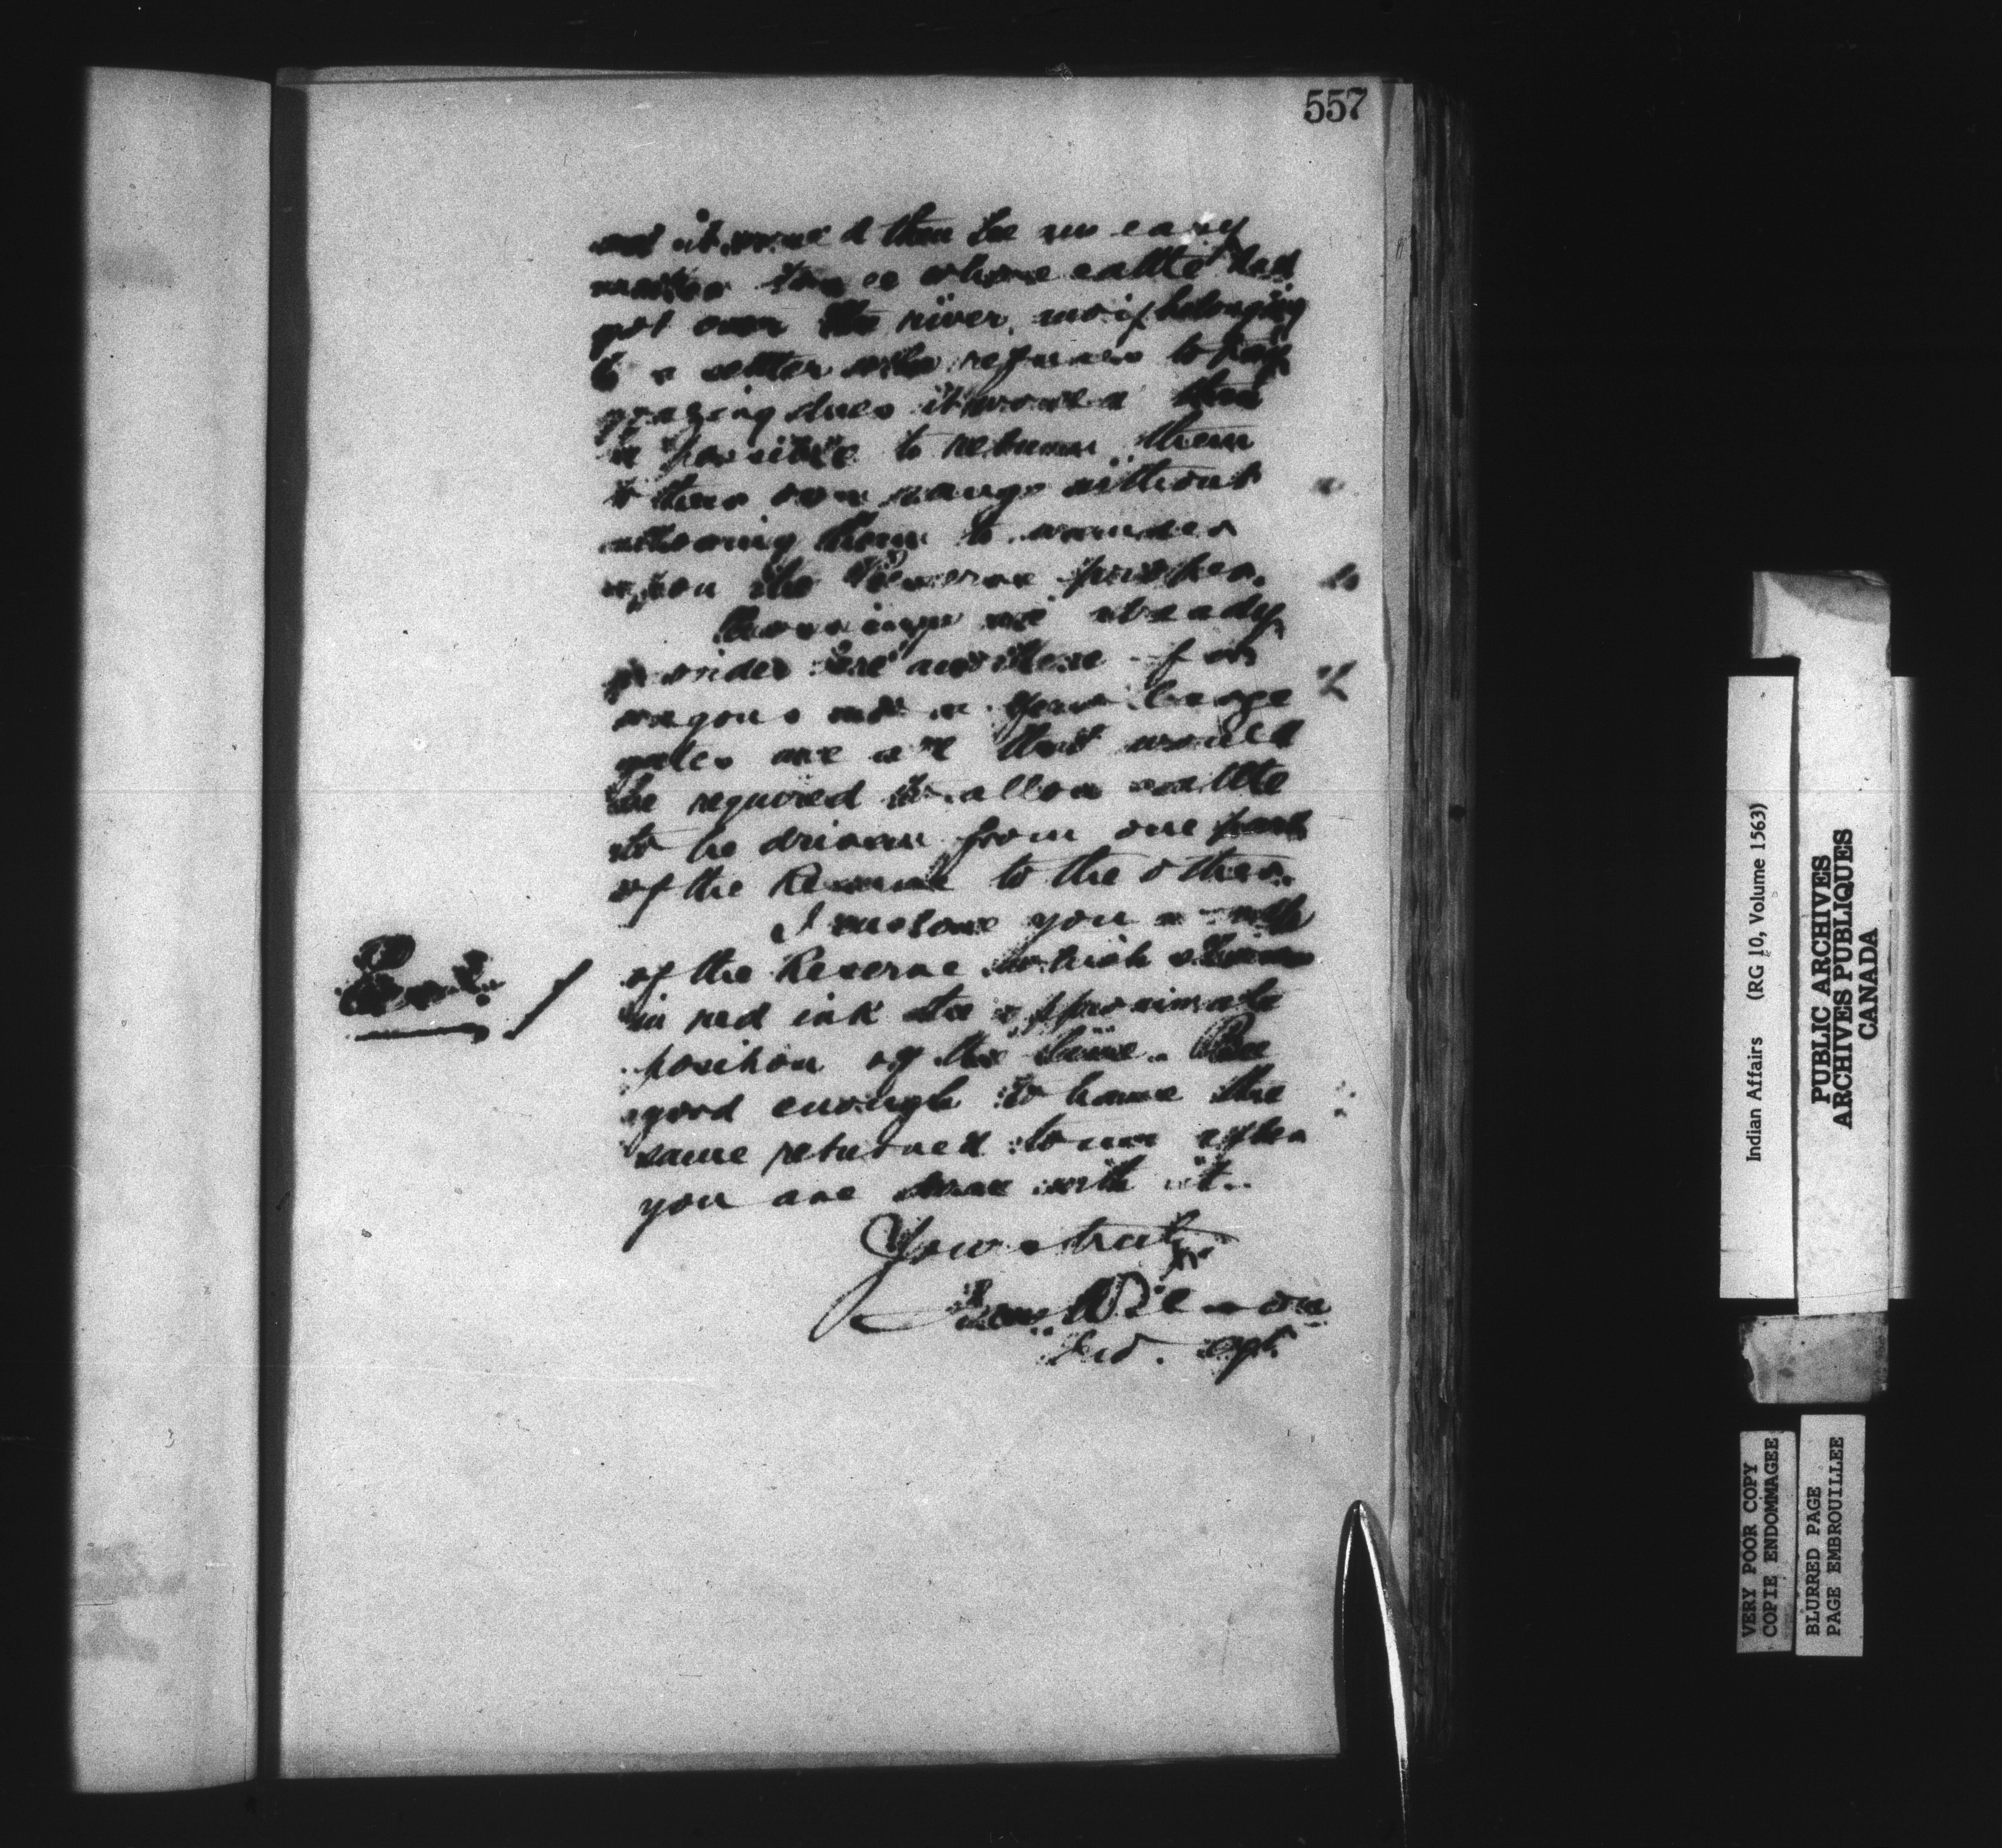 557
and it would then be an easy
matter to see whose cattle had
got over the river, and if belonging
to a settler who refuses to pay
grazing dues it would then
be possible to return them
to their own range without
allowing them to wander
upon the Reserve proper.
Crossings are already
provided here and there for
wagons and a few large
gates are all that would
be required to allow cattle
to be driven from one part
of the Reserve to the other.
I enclose you a
of the Reserve which shows
in red ink the approximate
position of the line. Be
good enough to have the
same returned to me after
you are done with it.
Encl. /
Yours truly
Wilson
Ind. Agt.
Indian Affairs (RG 10, Volume 1563)
PUBLIC ARCHIVES
ARCHIVES PUBLIQUES
CANADA
VERY POOR COPY
COPIE ENDOMMAGEE
BLURRED PAGE
PAGE EMBROUILLEE